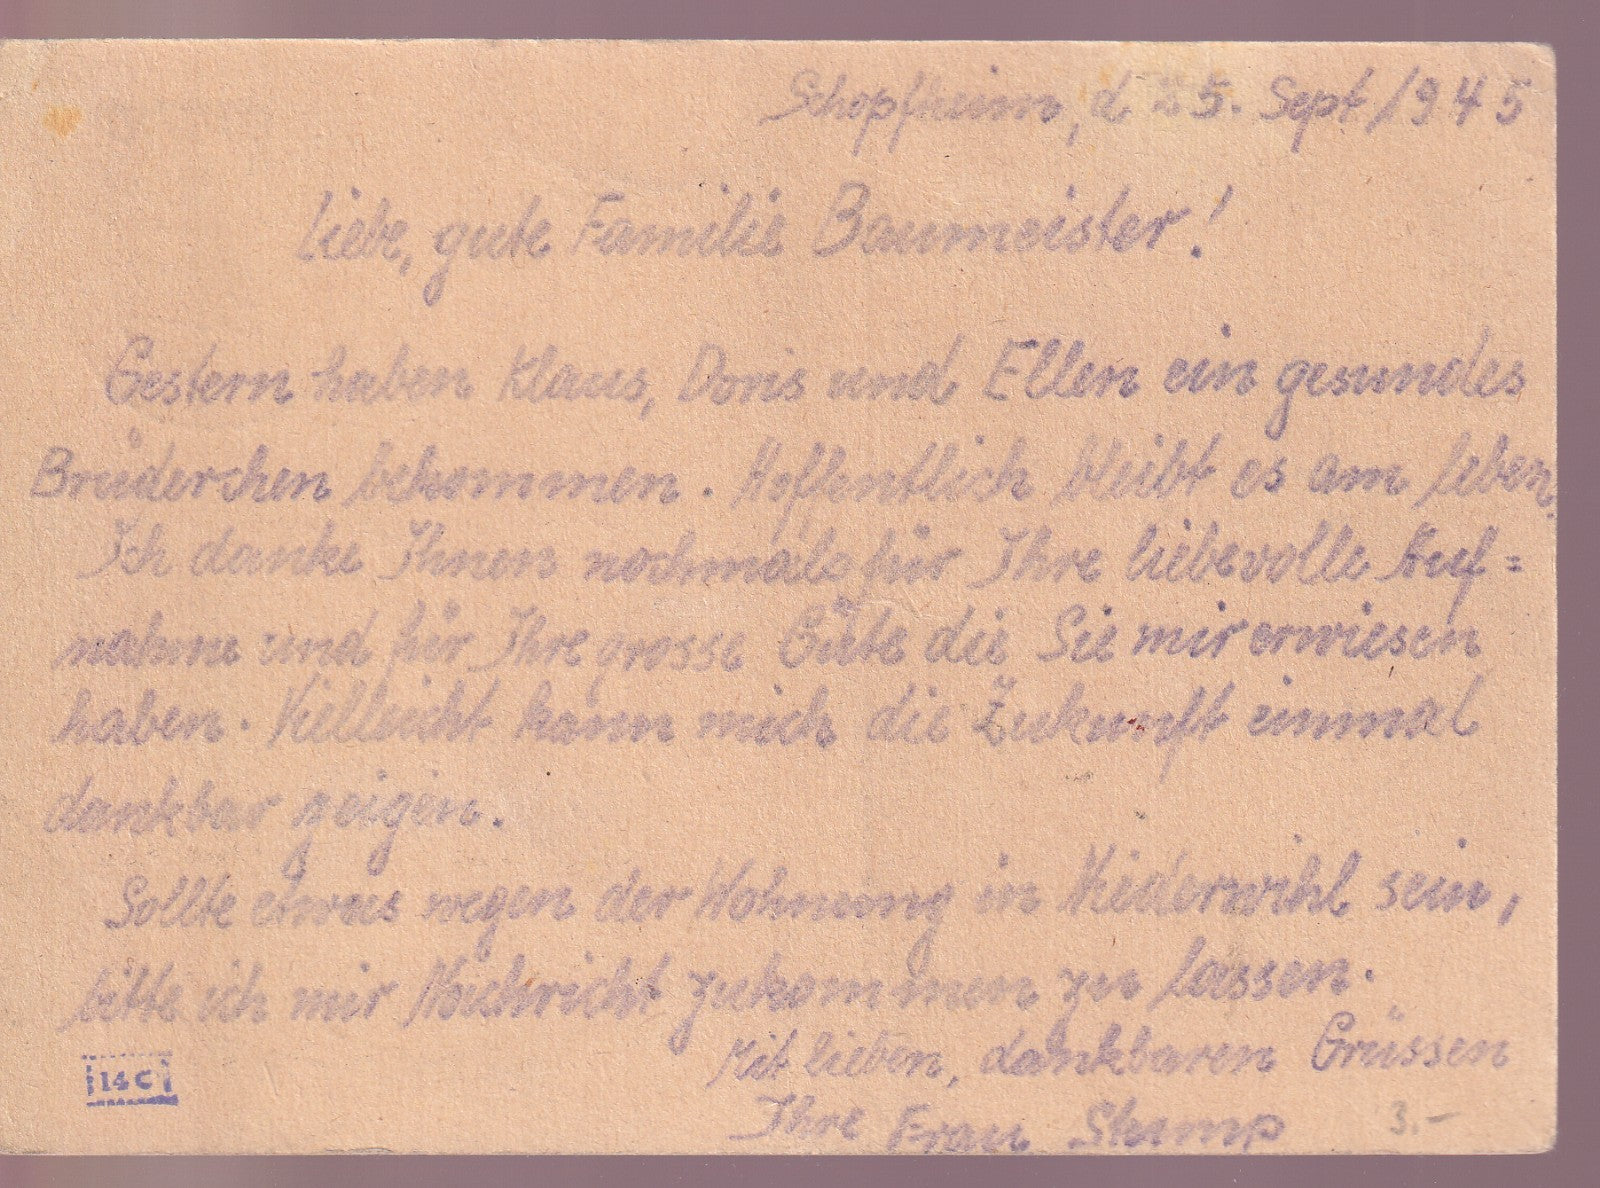 Schopfheim, d 25. Sept 1945
Liebe, gute Familie Baumeister!
Gestern haben Klaus, Doris und Ellen ein gesundes
Brüderchen bekommen. Hoffentlich bleibt es am leben,
Ich danke Ihnen nochmals für Ihre liebevolle Auf=
nahme und für Ihre grosse Güte die Sie mir erwiesen
haben. Vielleicht kann mich die Zukunft einmal
dankbar zeigen.
Sollte etwas wegen der Wohnung in Niederwihl sein,
bitte ich mir Nachricht zukommen zu lassen.
Mit lieben, dankbaren Grüssen
Ihre Frau Stump
14 C
3.-